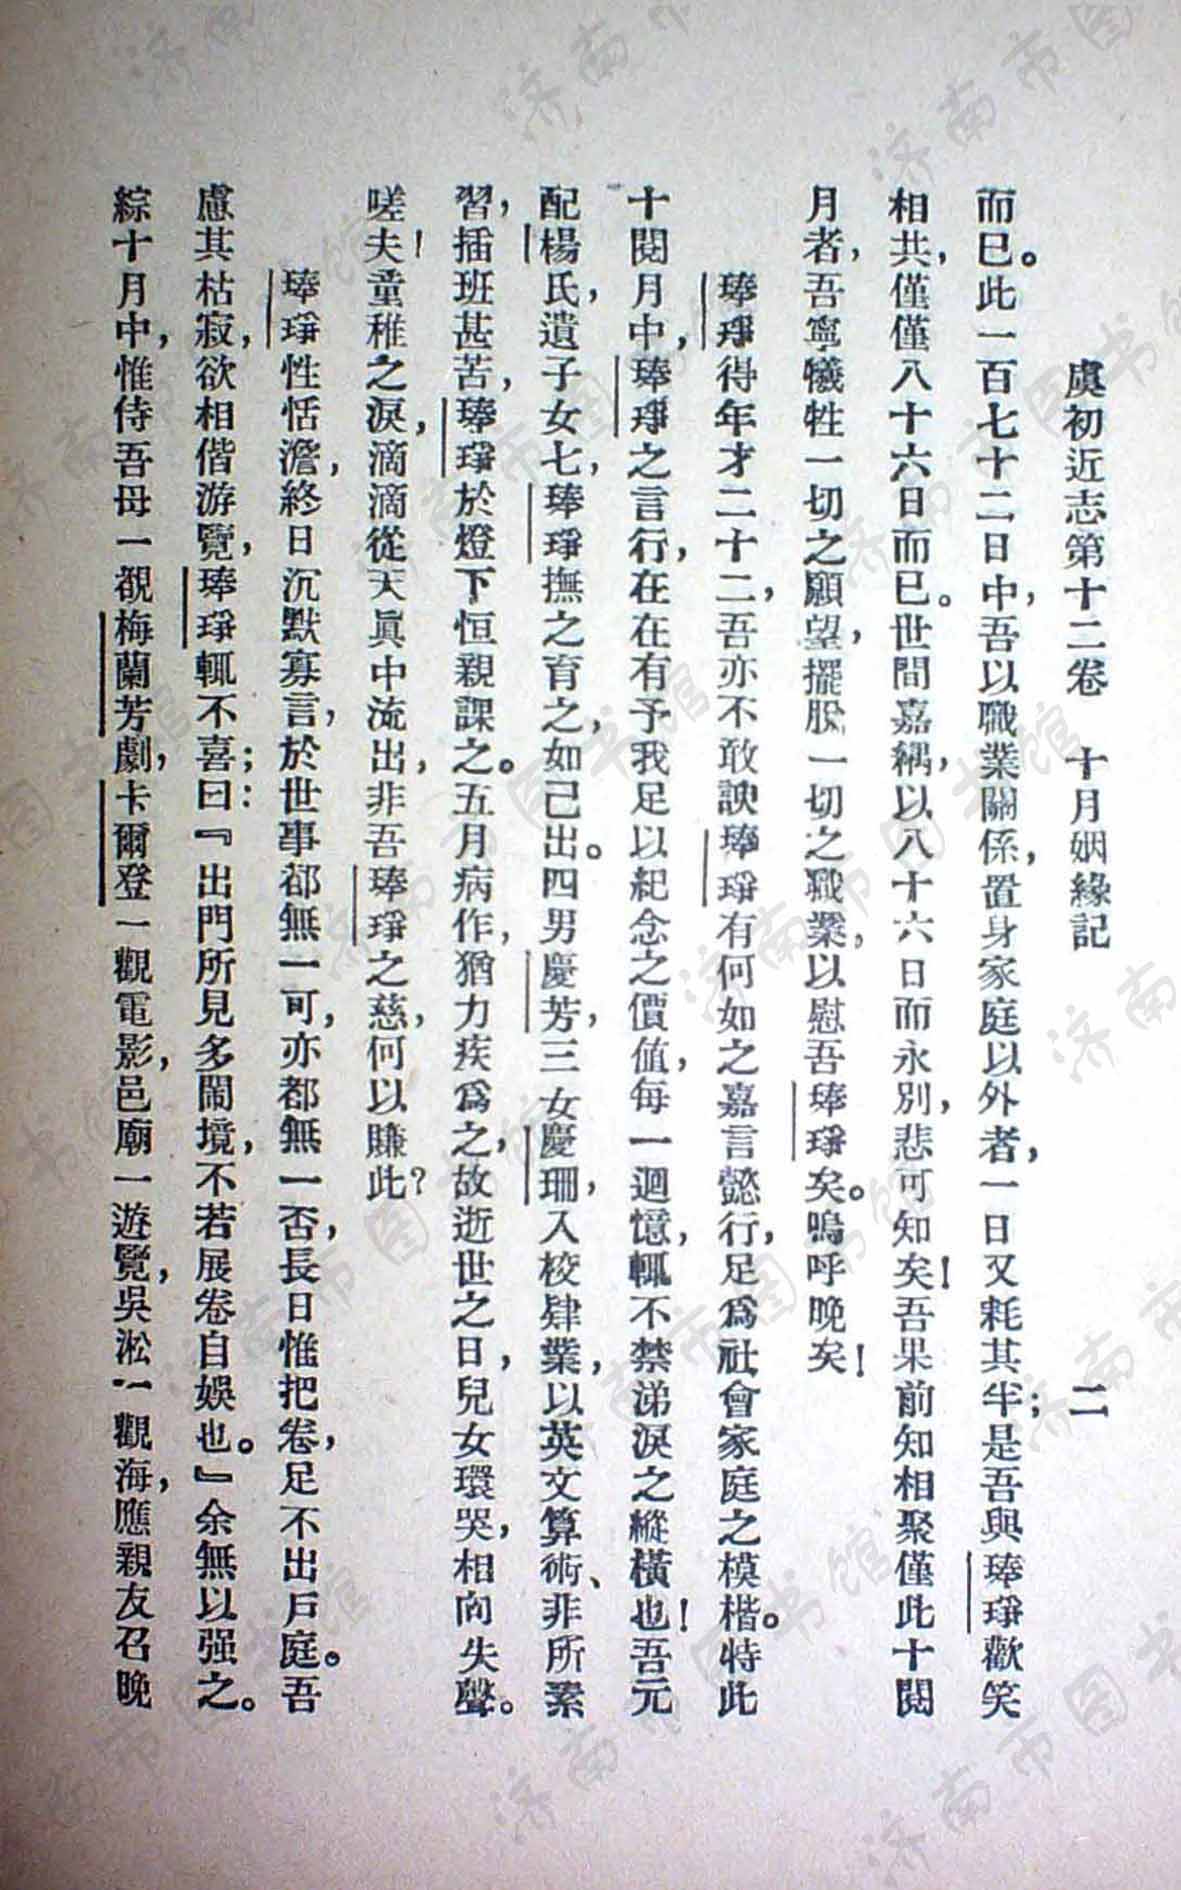 虞初近志第十二卷　十月姻緣記　二
而已。此一百七十二日中，吾以職業關係，置身家庭以外者，一日又耗其半；是吾與琫琤歡笑
相共，僅僅八十六日而已。世間嘉耦，以八十六日而永別，悲可知矣！吾果前知相聚僅此十閱
月者，吾寧犧牲一切之願望，擺脫一切之職業，以慰吾琫琤矣。嗚呼晚矣！
琫琤得年才二十二，吾亦不敢諛琫琤有何如之嘉言懿行，足爲社會家庭之模楷。特此
十閱月中，琫琤之言行，在在有予我足以紀念之價值，每一迴憶，輒不禁涕淚之縱橫也！吾元
配楊氏，遺子女七，琫琤撫之育之，如己出。四男慶芳，三女慶珊，入校肄業，以英文算術、非所素
習，插班甚苦，琫琤於燈下恒親課之。五月病作，猶力疾爲之，故逝世之日，兒女環哭，相向失聲。
嗟夫！童稚之淚，滴滴從天眞中流出，非吾琫琤之慈，何以賺此？
琫琤性恬澹，終日沉默寡言，於世事都無一可，亦都無一否，長日惟把卷，足不出戶庭。吾
慮其枯寂，欲相偕游覽，琫琤輒不喜；曰：『出門所見多鬧境，不若展卷自娛也。』余無以强之。
綜十月中，惟侍吾母一觀梅蘭芳劇，卡爾登一觀電影，邑廟一遊覽，吳淞一觀海，應親友召晚
济南市图书馆